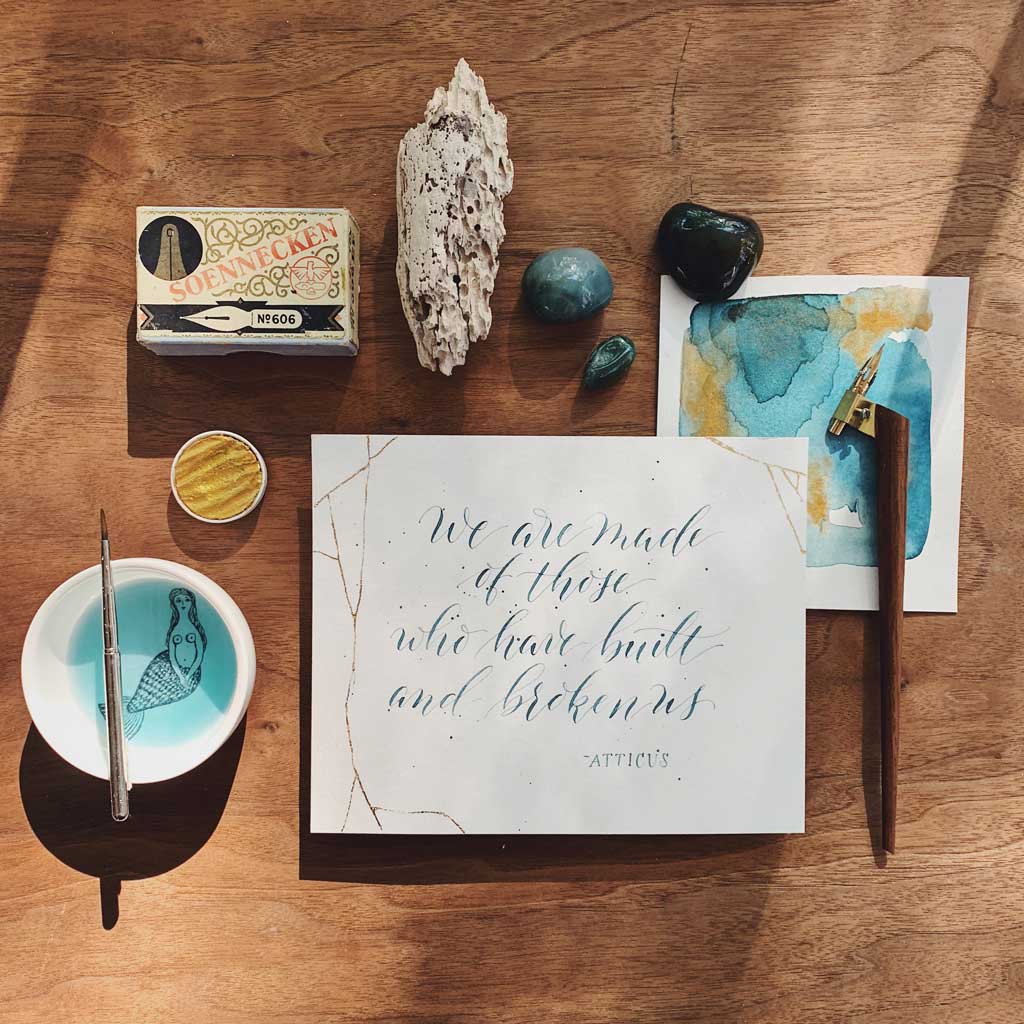 SOENNECKEN
Nº606
We are made
of those
who have built
and broken us
-ATTICUS